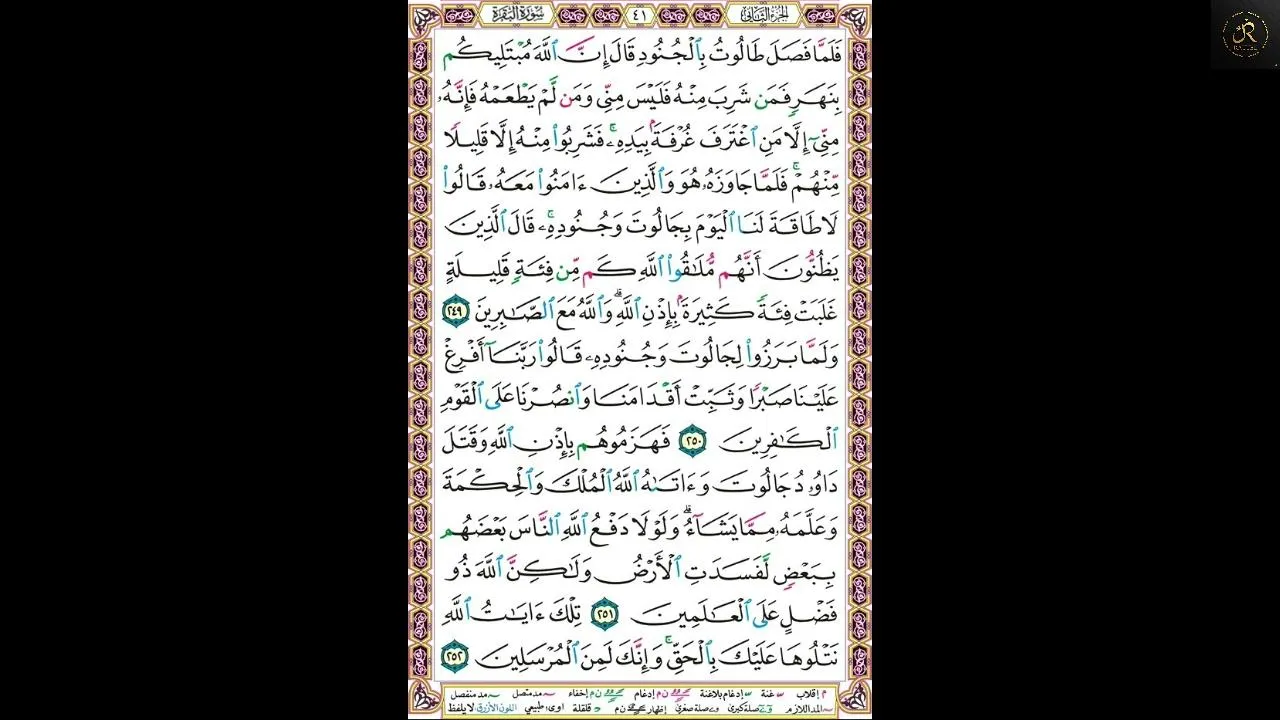 الجزء الثاني ٤١ سورة البقرة
فَلَمَّا فَصَلَ طَالُوتُ بِٱلْجُنُودِ قَالَ إِنَّ ٱللَّهَ مُبْتَلِيكُم
بِنَهَرٍ فَمَن شَرِبَ مِنْهُ فَلَيْسَ مِنِّى وَمَن لَّمْ يَطْعَمْهُ فَإِنَّهُۥ
مِنِّىٓ إِلَّا مَنِ ٱغْتَرَفَ غُرْفَةَۢ بِيَدِهِۦۚ فَشَرِبُوا۟ مِنْهُ إِلَّا قَلِيلًا
مِّنْهُمْۚ فَلَمَّا جَاوَزَهُۥ هُوَ وَٱلَّذِينَ ءَامَنُوا۟ مَعَهُۥ قَالُوا۟
لَا طَاقَةَ لَنَا ٱلْيَوْمَ بِجَالُوتَ وَجُنُودِهِۦۚ قَالَ ٱلَّذِينَ
يَظُنُّونَ أَنَّهُم مُّلَـٰقُوا۟ ٱللَّهِ كَم مِّن فِئَةٍ قَلِيلَةٍ
غَلَبَتْ فِئَةً كَثِيرَةَۢ بِإِذْنِ ٱللَّهِۗ وَٱللَّهُ مَعَ ٱلصَّـٰبِرِينَ ٢٤٩
وَلَمَّا بَرَزُوا۟ لِجَالُوتَ وَجُنُودِهِۦ قَالُوا۟ رَبَّنَآ أَفْرِغْ
عَلَيْنَا صَبْرًا وَثَبِّتْ أَقْدَامَنَا وَٱنصُرْنَا عَلَى ٱلْقَوْمِ
ٱلْكَـٰفِرِينَ ٢٥٠ فَهَزَمُوهُم بِإِذْنِ ٱللَّهِ وَقَتَلَ
دَاوُۥدُ جَالُوتَ وَءَاتَىٰهُ ٱللَّهُ ٱلْمُلْكَ وَٱلْحِكْمَةَ
وَعَلَّمَهُۥ مِمَّا يَشَآءُۗ وَلَوْلَا دَفْعُ ٱللَّهِ ٱلنَّاسَ بَعْضَهُم
بِبَعْضٍ لَّفَسَدَتِ ٱلْأَرْضُ وَلَـٰكِنَّ ٱللَّهَ ذُو
فَضْلٍ عَلَى ٱلْعَـٰلَمِينَ ٢٥١ تِلْكَ ءَايَـٰتُ ٱللَّهِ
نَتْلُوهَا عَلَيْكَ بِٱلْحَقِّۚ وَإِنَّكَ لَمِنَ ٱلْمُرْسَلِينَ ٢٥٢
م إقلاب غنة إدغام بلاغنة ن م إدغام ن م إخفاء مد متصل مد منفصل
المد اللازم صلة كبرى صلة صغرى إظهار ن م قلقلة ا و ى طبيعي اللون الأزرق لا يلفظ